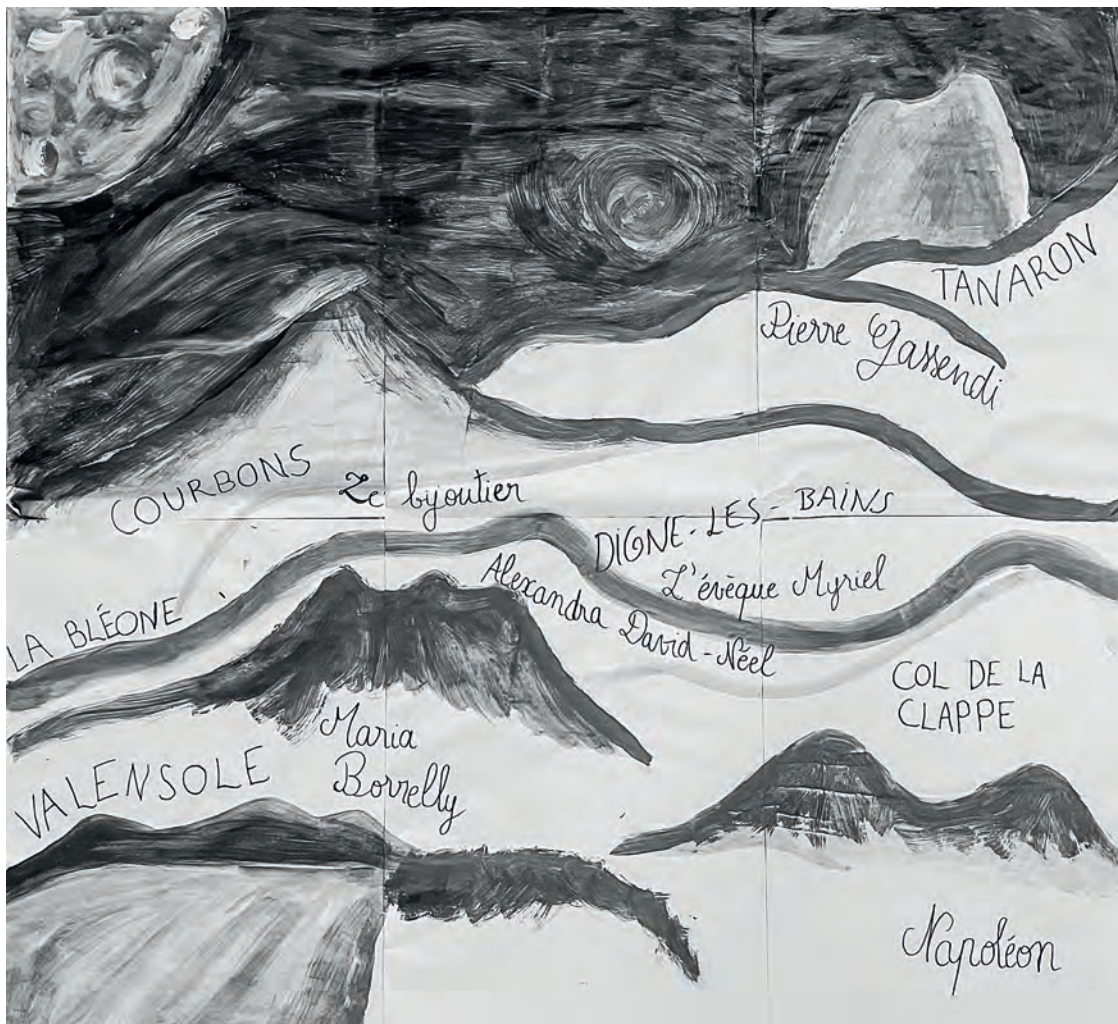 TANARON
Pierre Gassendi
COURBONS
Le bijoutier
DIGNE-LES-BAINS
L'évèque Myriel
Alexandra David-Néel
LA BLÉONE
COL DE LA
CLAPPE
Maria
Borrelly
VALENSOLE
Napoléon